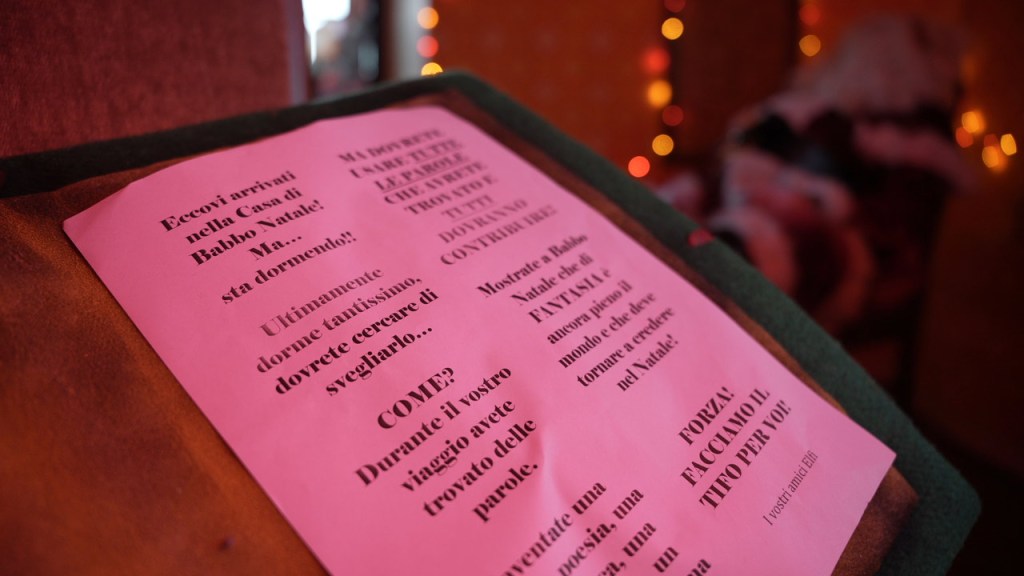 Eccovi arrivati
nella Casa di
Babbo Natale!
Ma...
sta dormendo!!
Ultimamente
dorme tantissimo,
dovrete cercare di
svegliarlo...
COME?
Durante il vostro
viaggio avete
trovato delle
parole.
ventate una
poesia, una
una
un
MA DOVRETE
USARE TUTTE
LE PAROLE
CHE AVRETE
TROVATO E
TUTTI
DOVRANNO
CONTRIBUIRE!
Mostrate a Babbo
Natale che di
FANTASIA è
ancora pieno il
mondo e che deve
tornare a credere
nel Natale!
FORZA!
FACCIAMO IL
TIFO PER VOI!
I vostri amici Elfi